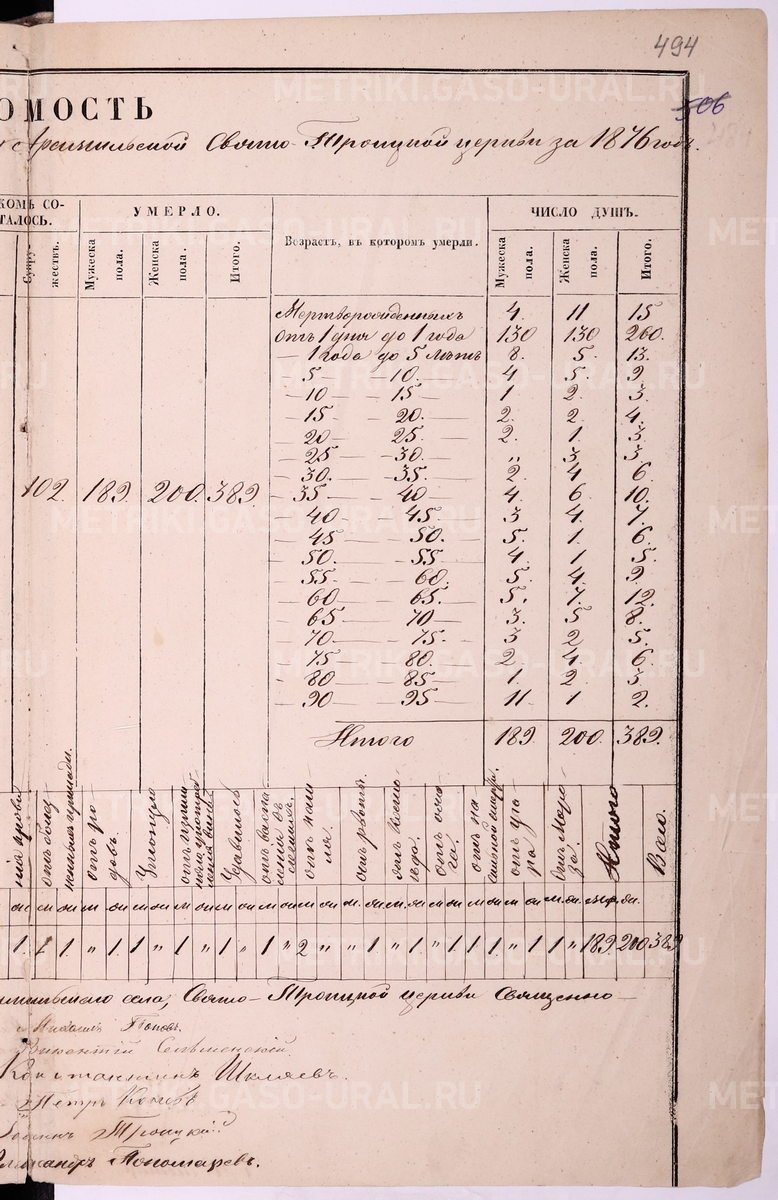 494
506
ОМОСТЬ
Арамильской Свято-Троицкой церкви за 1876 годъ.
КОМЪ СО-
ТАЛОСЬ.
УМЕРЛО.
Возрастъ, въ которомъ умерли.
ЧИСЛО ДУШЪ.
Супру-
жествъ.
Мужеска
пола.
Женска
пола.
Итого.
Мужеска
пола.
Женска
пола.
Итого.
102. 189. 200. 389.
Мертворожденныхъ 4. 11 15
отъ 1 дня до 1 года 130 130 260.
— 1 года до 5 лѣтъ 8. 5. 13.
— 5 — —10. — 4 5. 9
—10 — 15 — 1 2. 3.
— 15 20. — 2. 2 4.
— 20 — 25. — 2. 1. 3.
— 25 — —30. — „ 3 3
— 30. — —35. — 2. 4 6.
— 35 — —40 — 4. 6 10.
— 40 — —45. — 3 4. 7.
— 45 50. — 5. 1. 6.
— 50. — 55 — 4. 1 5.
— 55. — 60. 5. 4. 9
— 60 — 65. — 5. 7. 12.
— 65 70 — 3. 5 8.
— 70 — — 75. — 3 2 5.
— 75 80. — 2 4 6.
— 80 — 85 — 1. 2. 3.
— 90 95 — 11 1 2.
Итого 189. 200. 389.
отъ ро-
довъ.
Утонуло
Удавилось
отъ
Отъ моро-
за.
Итого
Всего.
1. 1 1. „ 1. 1 „ 1 „ 1 „ 1 „ 2 „ „ 1 „ 1 „ 1 1 1. „ 1 1 „ 189. 200 389
села, Свято-Троицкой церкви Священно-
Поповъ.
Викентій
Константинъ Шкляевъ.
Петръ Поповъ
Троицкій
Александръ Пономаревъ.
METRIKI.GASO-URAL.RU